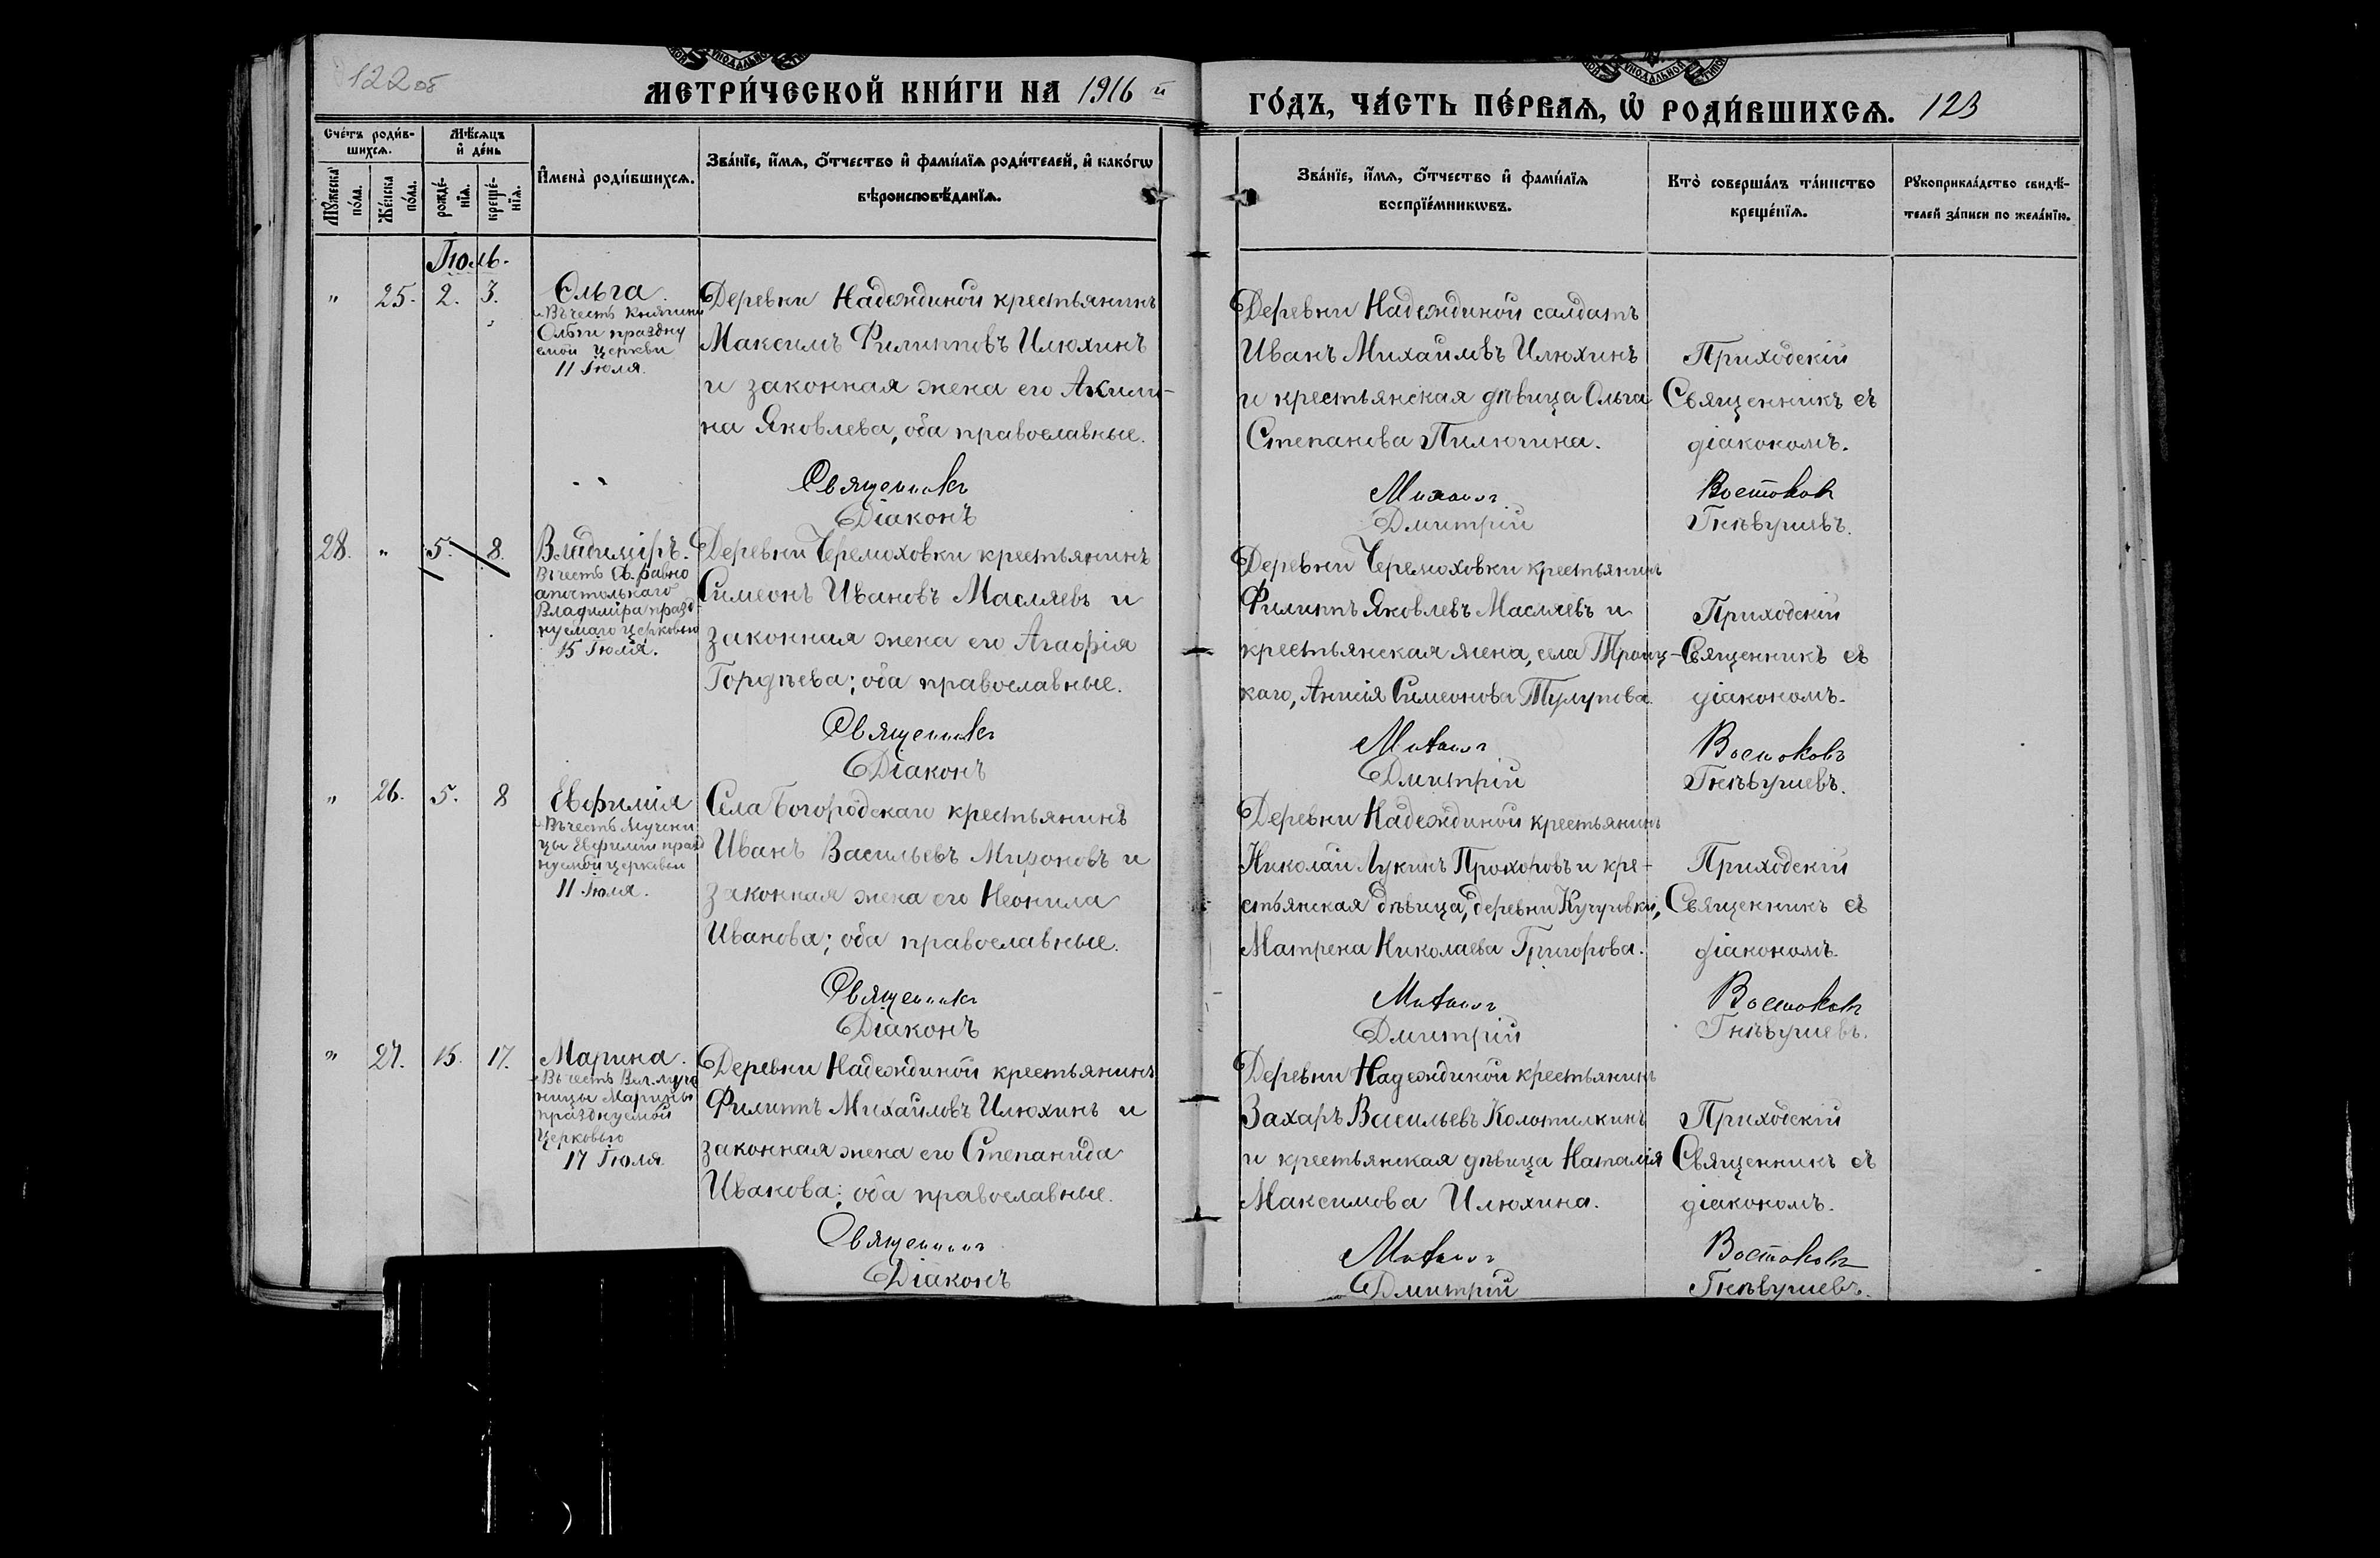 122 об
МЕТРИ́ЧЕСКОЙ КНИ́ГИ НА 1916 й
ГО́ДЪ, ЧА́СТЬ ПЕ́РВАЯ, Ѡ РОДИ́ВШИХСЯ. 123
Сче́тъ роди́в-
шихся.
Мѣ́сяцъ
и҆ де́нь
Му́жеска по́ла.
Же́нска по́ла.
рожде́-
нїя.
креще́-
нїя.
И҆мена̀ роди́вшихся.
Зва́нїе, и҆́мя, ѻ҆́тчество и҆ фами́лїя роди́телей, и҆ како́гѡ
вѣроисповѣ́данїя.
Зва́нїе, и҆́мя, ѻ҆́тчество и҆ фами́лїя
воспрїе́мникѡвъ.
Кто̀ соверша́лъ та́инство
креще́нїя.
Рꙋкоприкла́дство свидѣ́-
телей за́писи по жела́нїю.
Іюль.
" 25. 2. 3.
Ольга
Въ честь Княгини
Ольги праздну
емой церкви
11 Іюля.
Деревни Надеждиной крестьянинъ
Максимъ Филипповъ Илюхинъ
и законная жена его Акили-
на Яковлева, оба православные.
Священникъ
Діаконъ
Деревни Надеждиной салдатъ
Иванъ Михайловъ Илюхинъ
и крестьянская дѣвица Ольга
Степанова Пилюгина.
Михаилъ
Дмитрій
Приходскій
Священникъ съ
діакономъ.
Востоковъ
Гнѣвушевъ.
28. " 5. 8.
Владиміръ.
Въ честь Св. равно
апостольнаго
Владиміра празд-
нуемаго церковью
15 Іюля.
Деревни Черемоховки крестьянинъ
Симеонъ Ивановъ Масляевъ и
законная жена его Агафія
Гордѣева; оба православные.
Священникъ
Діаконъ
Деревни Черемоховки крестьянинъ
Филиппъ Яковлевъ Масляевъ и
крестьянская жена, села Троиц-
каго, Анисія Симеонова Тулупова.
Михаилъ
Дмитрій
Приходскій
Священникъ съ
діакономъ.
Востоковъ
Гнѣвушевъ.
" 26. 5. 8
Евфимія
Въ честь Мучени
цы Евфиміи празд
нуемой церковью
11 Іюля.
Села Богородскаго крестьянинъ
Иванъ Васильевъ Мироновъ и
законная жена его Неонила
Иванова; оба православные.
Священникъ
Діаконъ
Деревни Надеждиной крестьянинъ
Николай Лукинъ Прохоровъ и кре-
стьянская дѣвица, деревни Кучуровки,
Матрена Николаева Григорова.
Михаилъ
Дмитрій
Приходскій
Священникъ съ
діакономъ.
Востоковъ
Гнѣвушевъ.
" 27. 15. 17.
Марина.
Въ честь Вел. муче
ницы Марины
празднуемой
Церковью
17 Іюля.
Деревни Надеждиной крестьянинъ
Филиппъ Михайловъ Илюхинъ и
законная жена его Степанида
Иванова; оба православные.
Священникъ
Діаконъ
Деревни Надеждиной крестьянинъ
Захаръ Васильевъ Колотилкинъ
и крестьянская дѣвица Наталія
Максимова Илюхина.
Михаилъ
Дмитрій
Приходскій
Священникъ съ
діакономъ.
Востоковъ
Гнѣвушевъ.